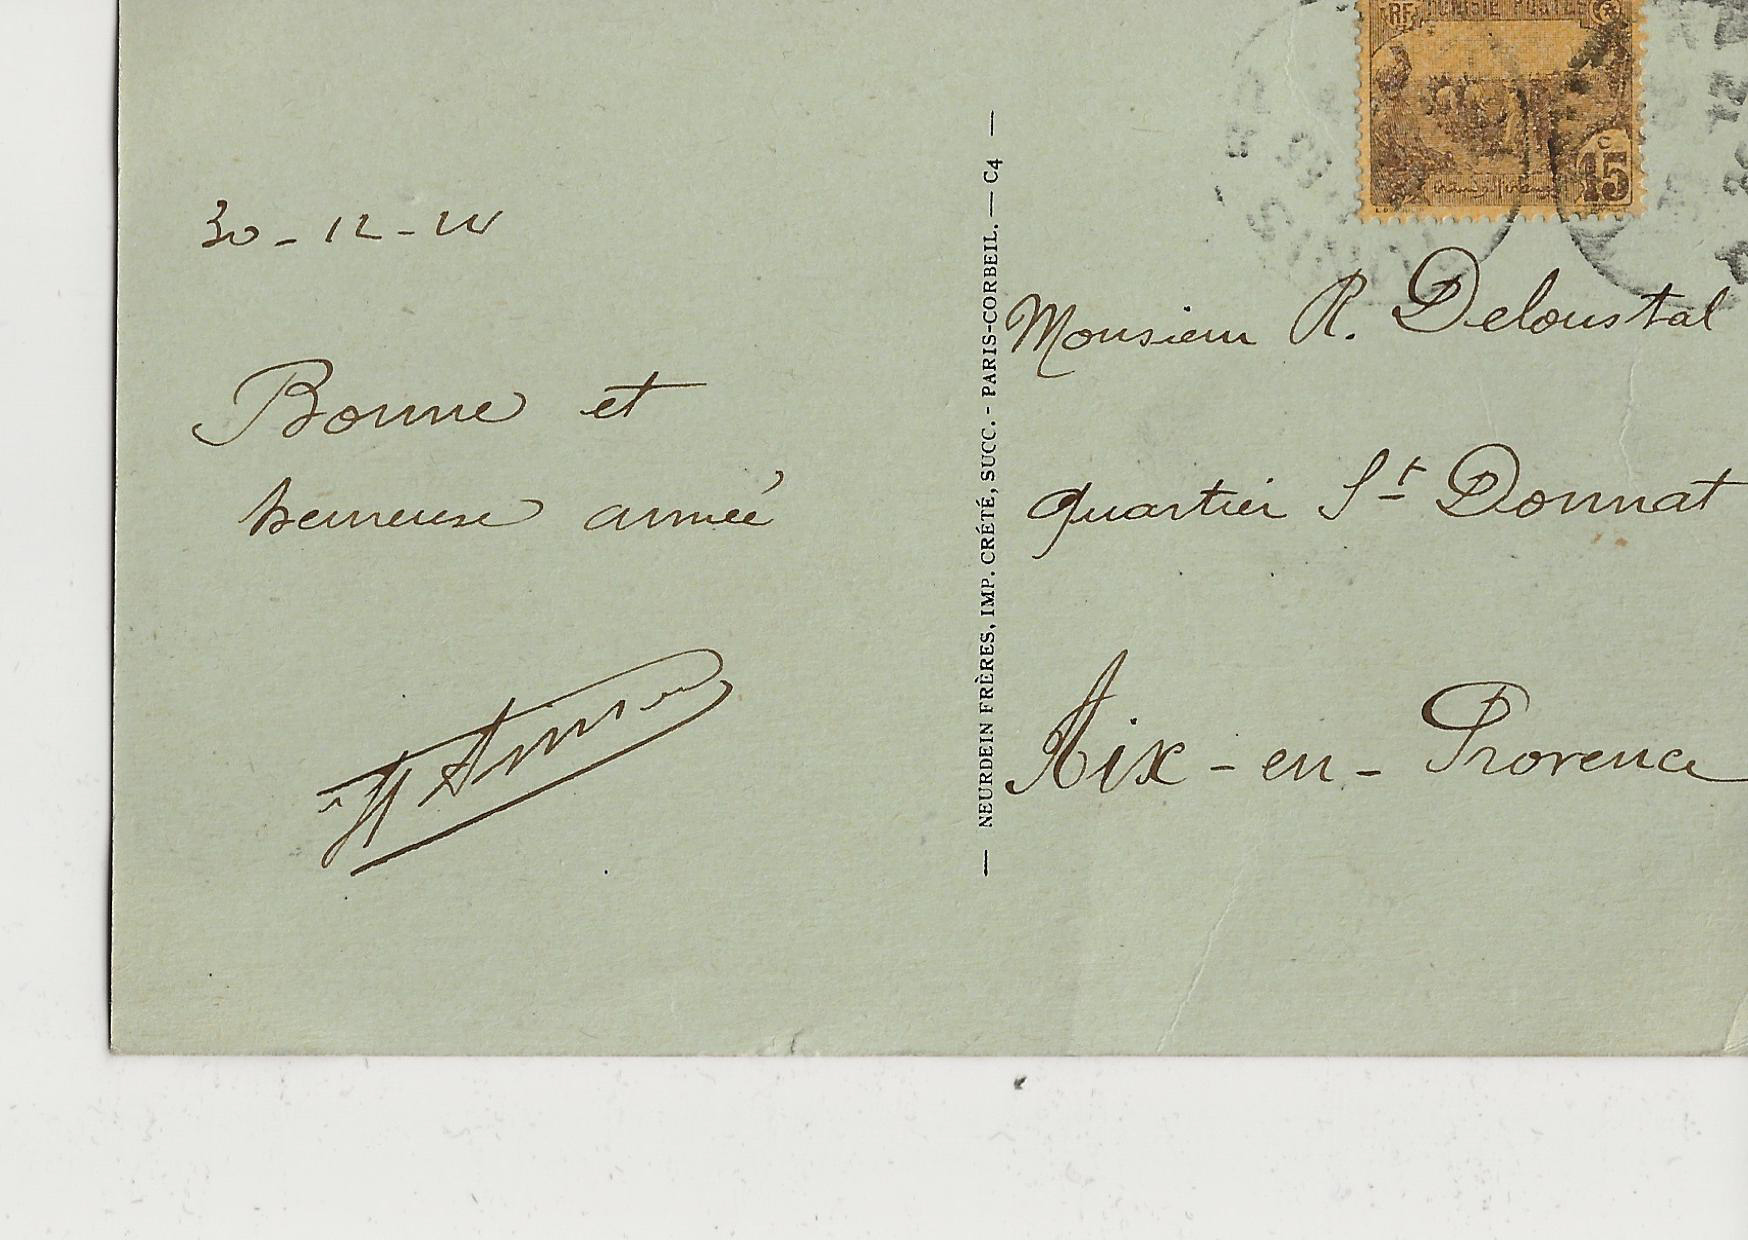 30-12-24
Bonne et
heureuse année
NEURDEIN FRÈRES, IMP. CRÉTÉ, SUCC. - PARIS-CORBEIL. — C4 —
RF TUNISIE POSTES
15 c
Monsieur R. Deloustal
quartier St Donnat
Aix-en-Provence